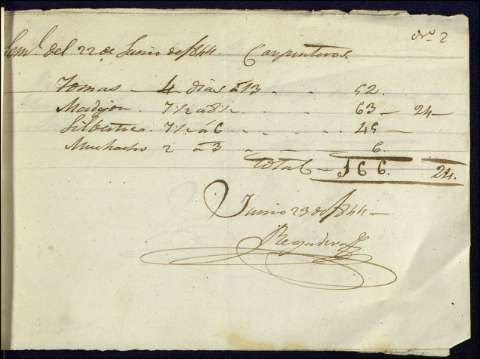 Nº 2
Semª del 22 de Junio de 1844 Carpinteros.
Tomas - 4 dias á 13 52.
7 1/2 á 8 1/2 63 - 24 -
7 1/2 á 6 45 -
Muchacho 2 á 3 6
Total - 166. 24.
Junio 23 de 1844 -